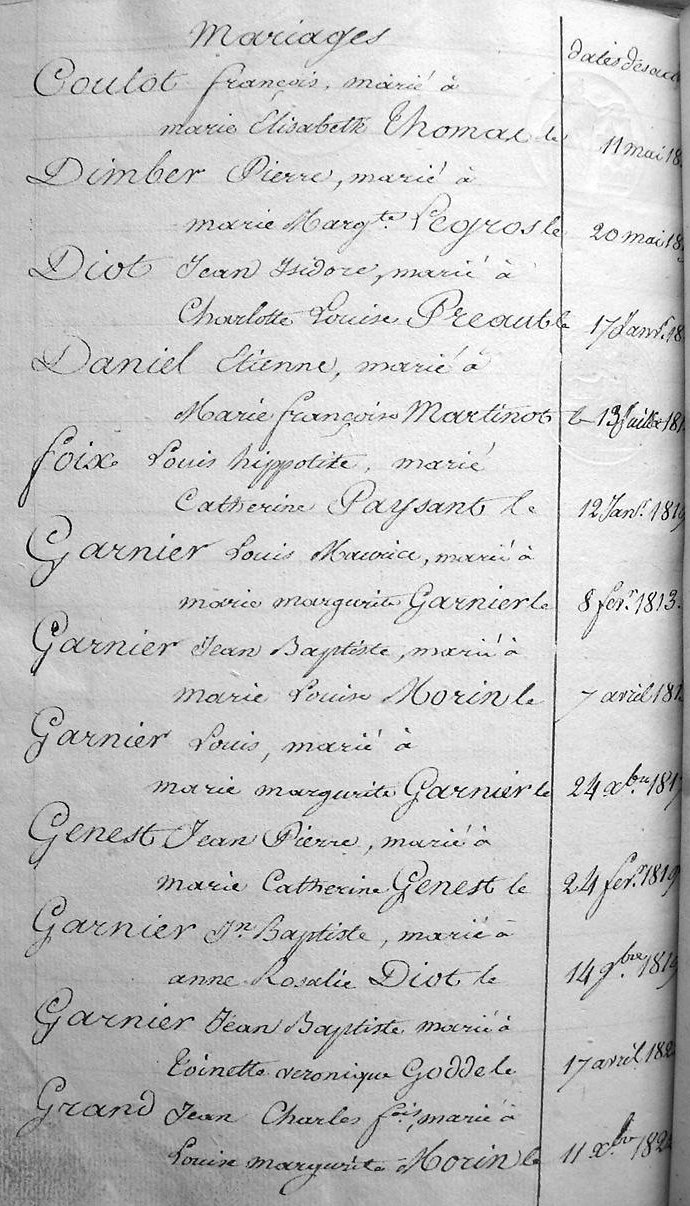 Mariages
dates des
Coulot françois, marié à
marie Elisabeth Thomas le 11 mai 18
Dimber Pierre, marié à
marie Margte. Legros le 20 mai 18
Diot Jean Isidore, marié à
Charlotte Louise Preaut le 17 Janr. 18
Daniel Etienne, marié à
Marie françoise Martinot le 13 Juillet 181
foix Louis hippolite, marié
Catherine Paysant le 12 Janr. 1819
Garnier Louis Maurice, marié à
marie margurite Garnier le 8 fer. 1813
Garnier Jean Baptiste, marié à
marie Louise Morin le 7 avril 181
Garnier Louis, marié à
marie margurite Garnier le 24 xbre 1817
Genest Jean Pierre, marié à
marie Catherine Genest le 24 fer. 1819
Garnier Jn Baptiste, marié à
anne Rosalie Diot le 14 9bre 1819
Garnier Jean Baptiste marié à
toinette veronique Godde le 17 avril 182
Grand Jean Charles fois, marié à
Louise margurite Morin le 11 xbre 182